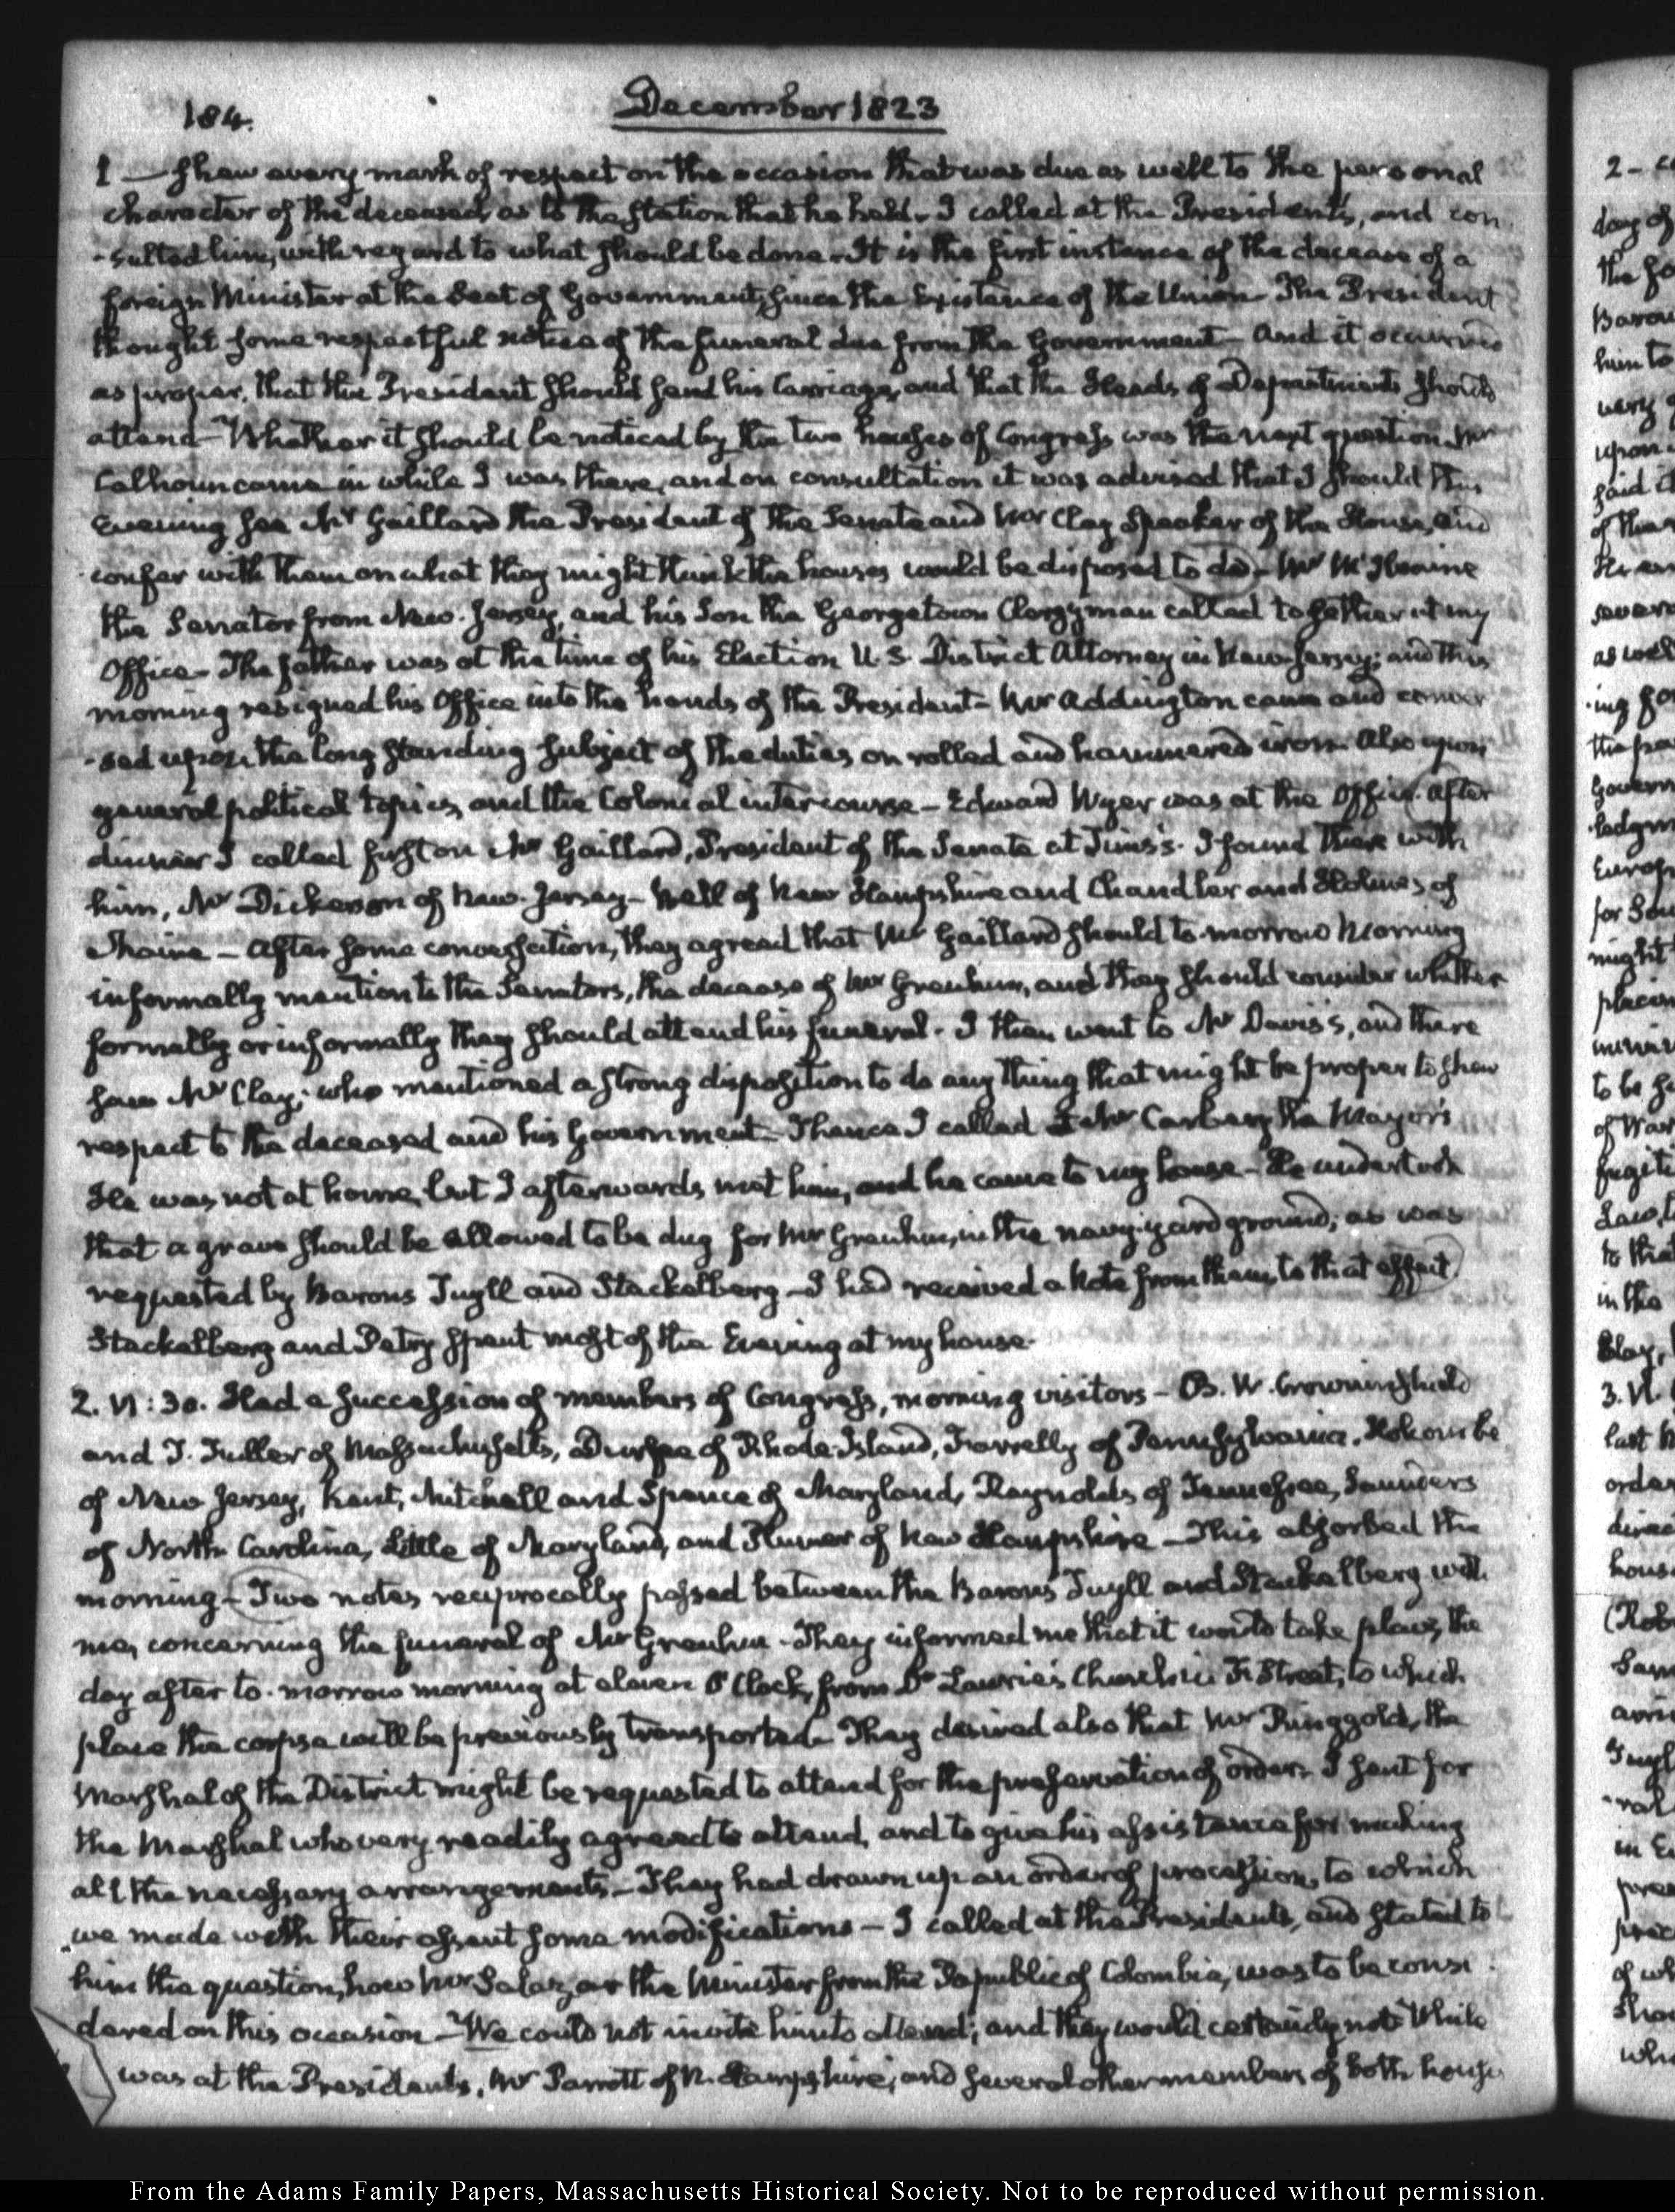 184.
December 1823
1 — shew every mark of respect on the occasion that was due as well to the personal
character of the deceased, as to the Station that he held. I called at the President's, and con
-sulted him, with regard to what should be done. It is the first instance of the decease of a
foreign Minister at the Seat of Government, since the Existence of the Union. The President
thought some respectful notice of the funeral due from the Government— and it occurred
as proper, that the President should send his Carriage, and that the Heads of Departments should
attend— Whether it should be noticed by the two houses of Congress was the next question. Mr
Calhoun came in while I was there, and on consultation it was advised that I should this
Evening see Mr Gaillard the President of the Senate and Mr Clay Speaker of the House, and
confer with them on what they might think the houses would be disposed to do— Mr McIlvaine
the Senator from New-Jersey, and his Son the Georgetown Clergyman called together at my
Office— The father was at the time of his Election U.S. District Attorney in New-Jersey; and this
morning resigned his Office into the hands of the President— Mr Addington came and conver
-sed upon the long standing subject of the duties on rolled and hammered iron. Also upon
general political topics, and the Colonial intercourse— Edward Wyer was at the Office. After
dinner I called first on Mr Gaillard, President of the Senate at Tims's. I found there with
him, Mr Dickerson of New-Jersey— Bell of New Hampshire and Chandler and Holmes of
Maine— After some conversation, they agreed that Mr Gaillard should to-morrow Morning
informally mention to the Senators, the decease of Mr Greuhm, and they should consider whether
formally or informally they should attend his funeral. I then went to Mr Davis's, and there
saw Mr Clay; who mentioned a strong disposition to do any thing that might be proper to shew
respect to the deceased and his Government— Thence I called at Mr Carbery the Mayor's
He was not at home, but I afterwards met him, and he came to my house— He undertook
that a grave should be allowed to be dug for Mr Greuhm, in the navy-yard ground; as was
requested by Barons Tuyll and Stackelberg— I had received a Note from them, to that effect.
Stackelberg and Petry spent most of the Evening at my house.
2. VI:30. Had a succession of members of Congress, morning visitors— B. W. Crowninshield
and T. Fuller of Massachusetts, Durfee of Rhode-Island, Farrelly of Pennsylvania, Holcombe
of New Jersey, Kent, Mitchell and Spence of Maryland, Reynolds of Tennessee, Saunders
of North Carolina, Little of Maryland, and Plumer of New Hampshire— This absorbed the
morning— Two notes reciprocally passed between the Barons Tuyll and Stackelberg with
me, concerning the funeral of Mr Greuhm— They informed me that it would take place, the
day after to-morrow morning at eleven O'Clock, from Dr Laurie's Church in F. Street, to which
place the corpse will be previously transported. They desired also that Mr Ringgold, the
Marshal of the District might be requested to attend for the preservation of order. I sent for
the Marshal who very readily agreed to attend, and to give his assistance for making
all the necessary arrangements— They had drawn up an order of procession, to which
we made with their assent some modifications— I called at the Presidents, and stated to
him the question, how Mr Salazar the Minister from the Republic of Colombia, was to be consi
dered on this occasion— We could not invite him to attend; and they would certainly not. While
was at the Presidents, Mr Parrott of N. Hampshire, and several other members of both houses